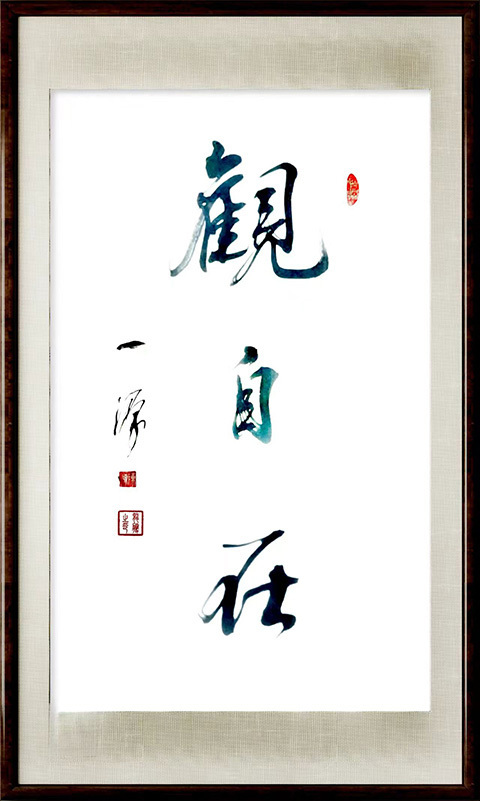 觀自在
一源